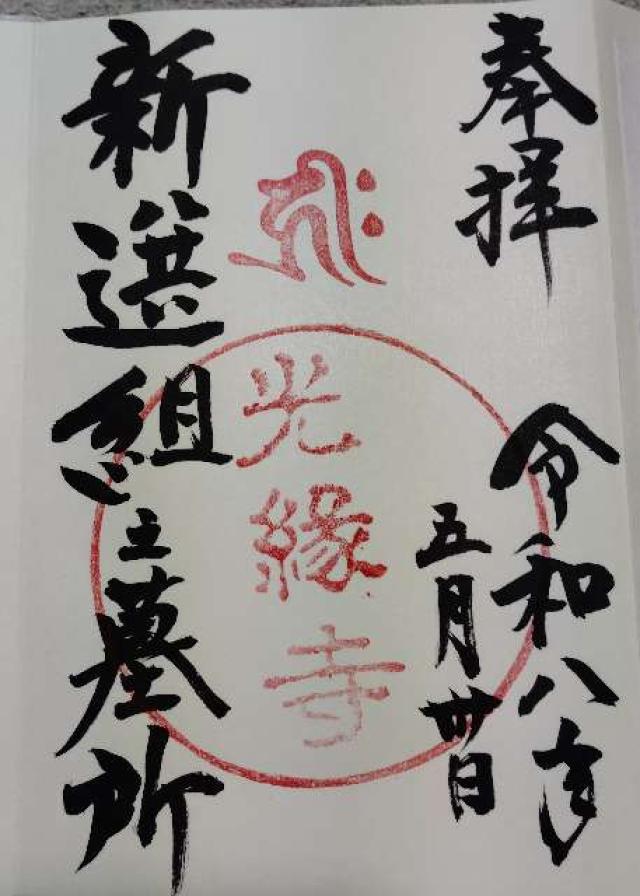 奉拝
令和八年
五月卅日
光縁寺
新選組之墓所